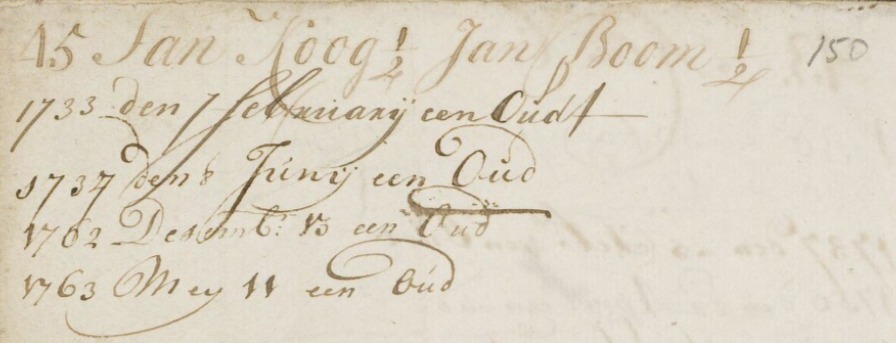 45 Jan Koog 1/2 Jan Boom 1/2 150
1733 den 7 februarij een Oudt
1737 den 8 Junij een Oud
1762 Desemb: 13 een Oud
1763 Mey 11 een Oud